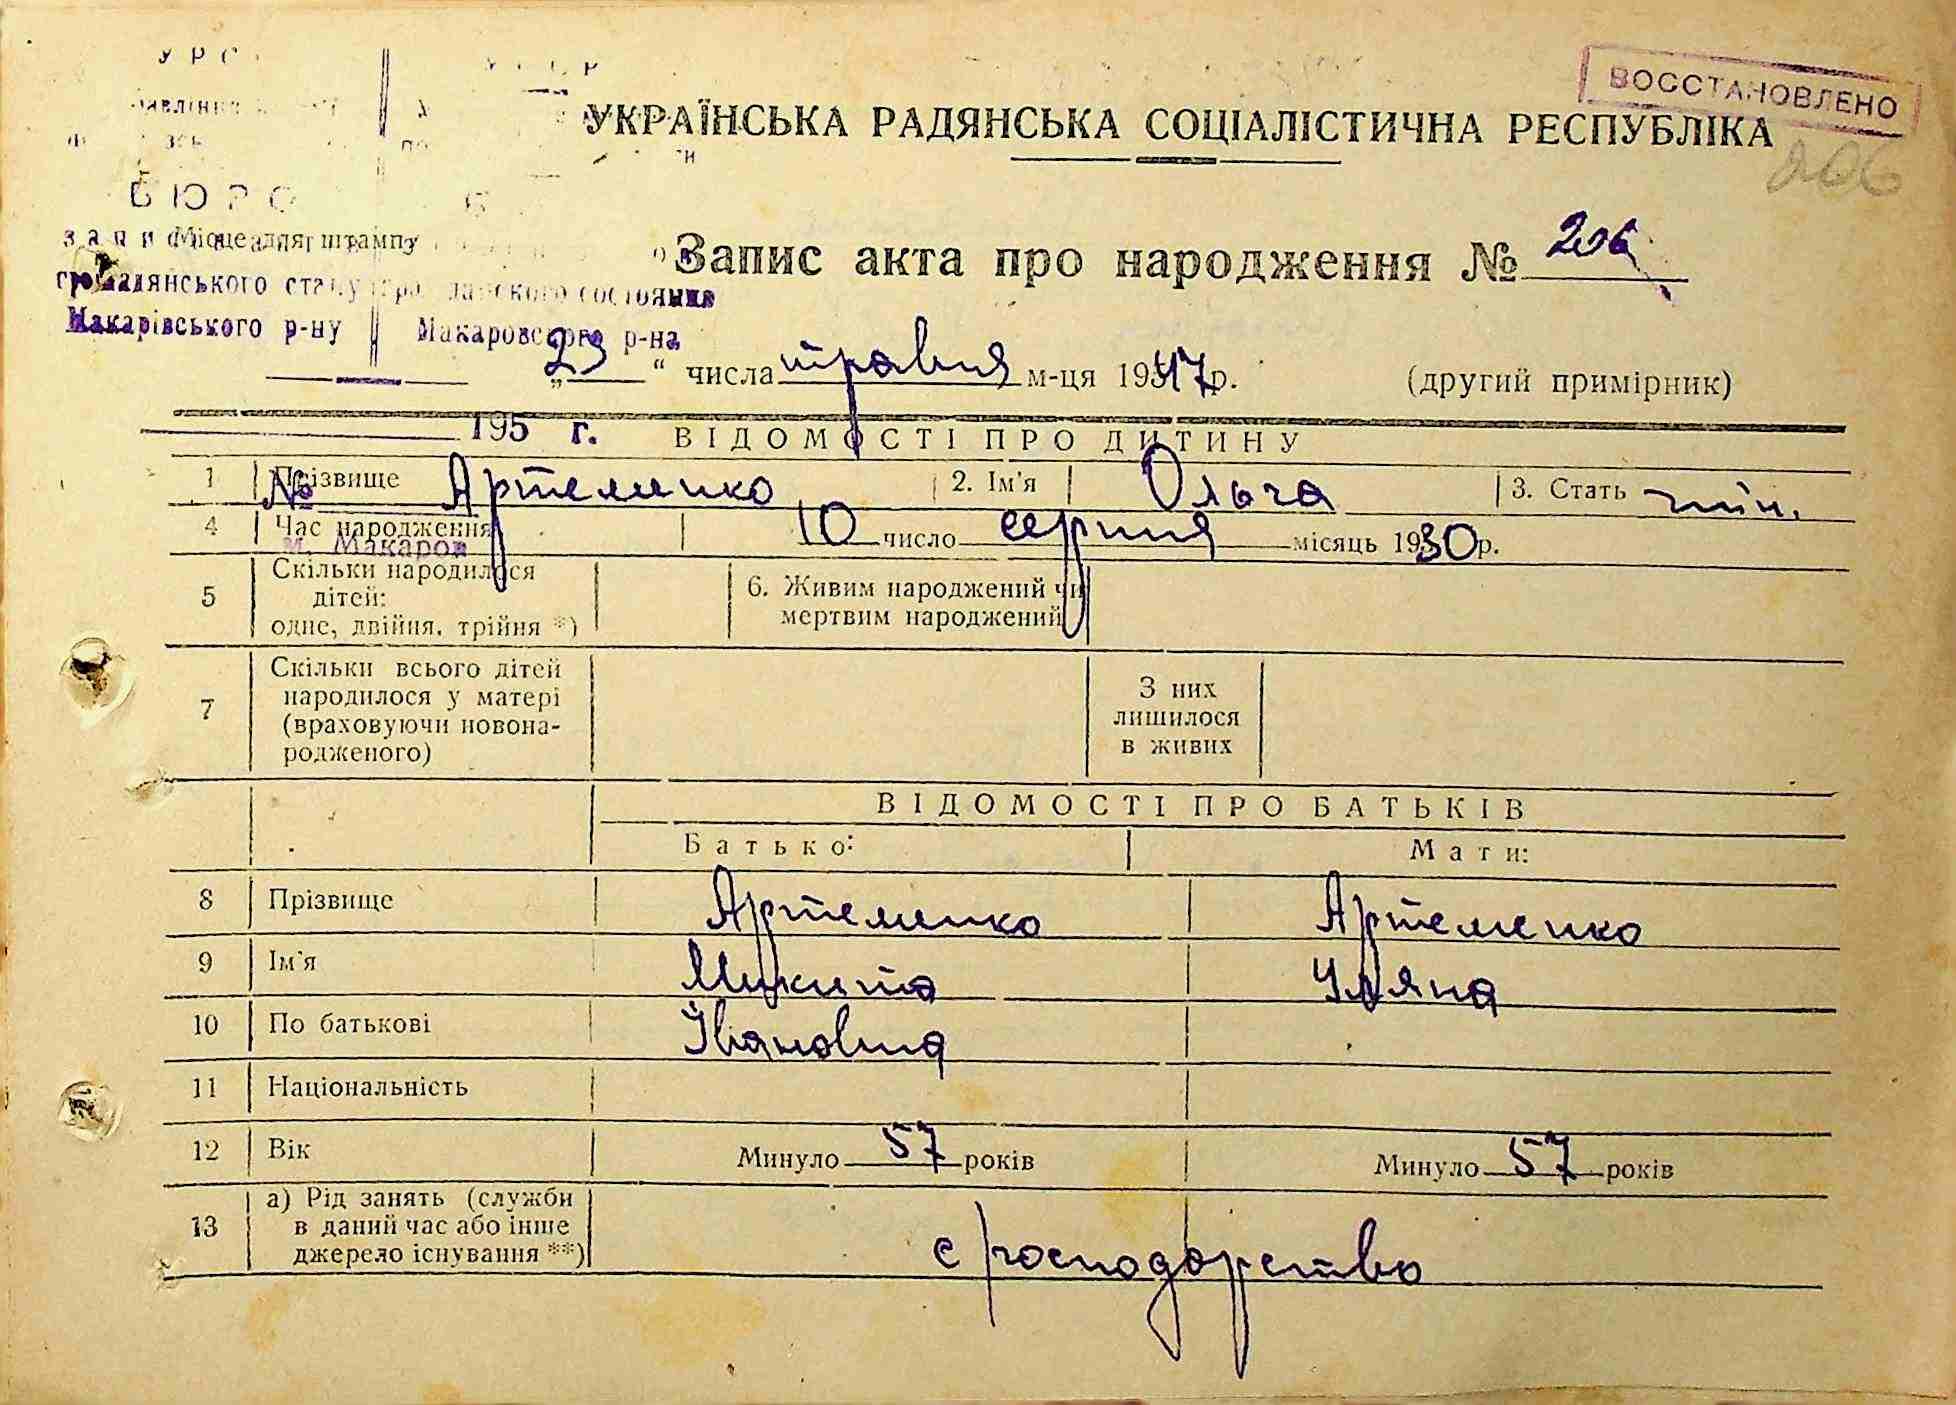 У Р С
ВОССТАНОВЛЕНО
УКРАЇНСЬКА РАДЯНСЬКА СОЦІАЛІСТИЧНА РЕСПУБЛІКА
206
БЮРО
Місце для штампу
Запис акта про народження № 206
громадянського стану гражданского состояния
Макарівського р-ну Макаровского р-на
„23“ числа травня м-ця 1947р. (другий примірник)
195 г. ВІДОМОСТІ ПРО ДИТИНУ
1 Прізвище Артеменко 2. Ім'я Ольга 3. Стать жін.
№
4 Час народження 10 число серпня місяць 1930р.
м. Макаров
5 Скільки народилося дітей: одне, двійня, трійня *) 6. Живим народжений чи мертвим народжений
7 Скільки всього дітей народилося у матері (враховуючи новонародженого) З них лишилося в живих
ВІДОМОСТІ ПРО БАТЬКІВ
Батько: Мати:
8 Прізвище Артеменко Артеменко
9 Ім'я Микита Уляна
10 По батькові Іванович
11 Національність
12 Вік Минуло 57 років Минуло 57 років
13 а) Рід занять (служби в даний час або інше джерело існування **) с/господарство